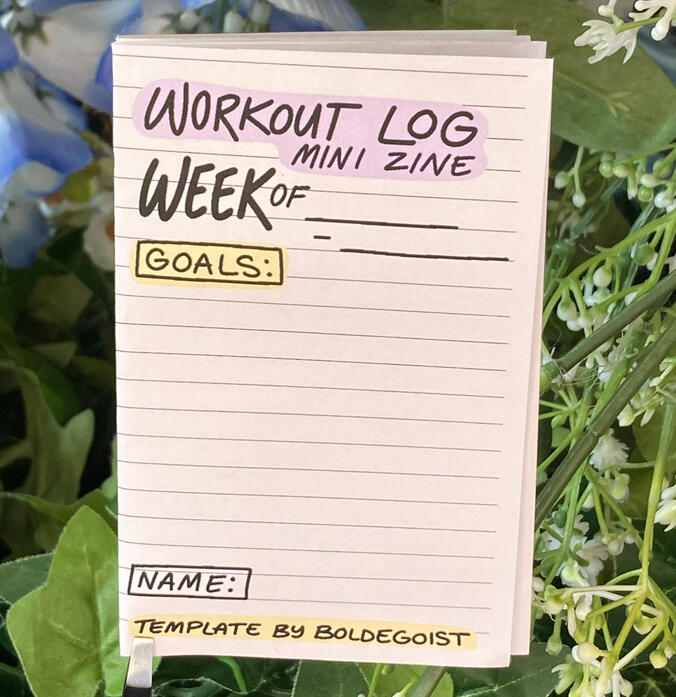 WORKOUT LOG
MINI ZINE
WEEK OF
-
GOALS:
NAME:
TEMPLATE BY BOLDEGOIST